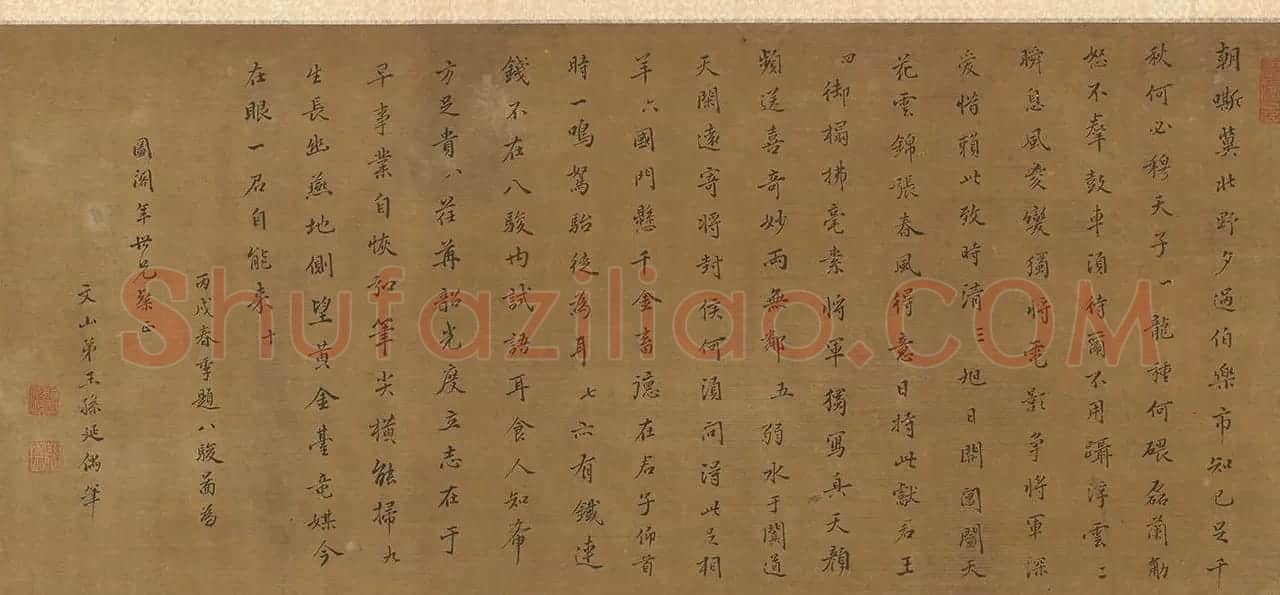 朝嘶冀北野夕過伯樂市知已足千
秋何必穆天子一龍種何磈磊蘭筋
怒不羣鼓車須待爾不用躡浮雲二
瞬息風夌變獨將電影争將軍深
愛惜賴此致時清三旭日開閶闔天
花雲錦張春風得意日將此獻君王
四御榻拂毫素將軍獨寫真天顏
頻送喜奇妙兩無鄰五弱水于闐道
天閑遠寄將封侯何須问得此足相
羊六國門懸千金畜德在君子仰首
時一鳴駑駘徒為耳七亦有鐵連
錢不在八駿内試語耳食人知希
方足貴八荏苒韶光度立志在于
早事業自恢弘筆尖橫能掃九
生長幽燕地側望黃金臺竜媒今
在眼一君自能来十
丙戌春季題八駿啚為
圖阁年世兄粲正
文山弟王孫延偶筆
Shufaziliao.COM